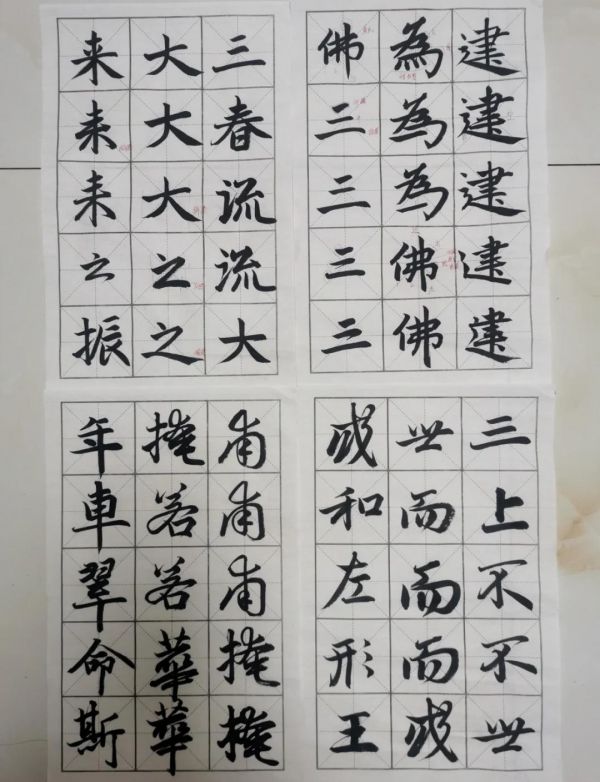 建建建建建
為為為佛佛
佛三三三三
三春流流大
大大大之之
来来来之振
三上不不世
世而而而成
成和左形王
甫甫甫掩掩
掩若若華華
年車翠命斯